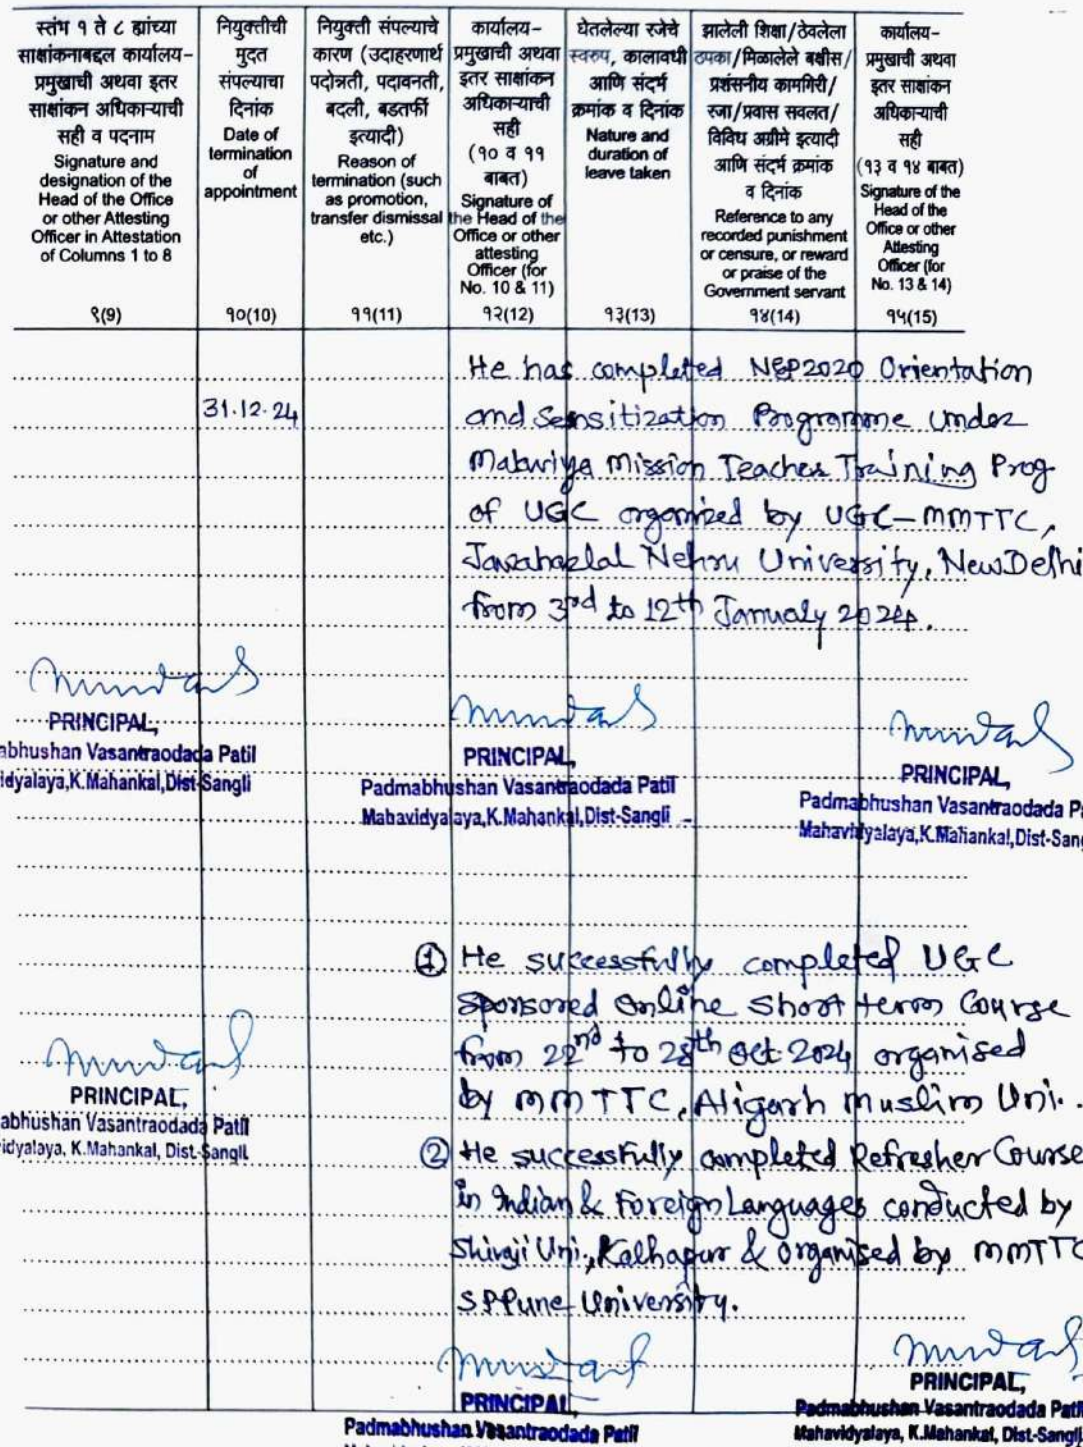 स्तंभ १ ते ८ ह्यांच्या
साक्षांकनाबद्दल कार्यालय-
प्रमुखाची अथवा इतर
साक्षांकन अधिकाऱ्याची
सही व पदनाम
Signature and
designation of the
Head of the Office
or other Attesting
Officer in Attestation
of Columns 1 to 8
९(9)
नियुक्तीची
मुदत
संपल्याचा
दिनांक
Date of
termination
of
appointment
१०(10)
नियुक्ती संपल्याचे
कारण (उदाहरणार्थ
पदोन्नती, पदावनती,
बदली, बडतर्फी
इत्यादी)
Reason of
termination (such
as promotion,
transfer dismissal
etc.)
११(11)
कार्यालय-
प्रमुखाची अथवा
इतर साक्षांकन
अधिकाऱ्याची
सही
(१० व ११
बाबत)
Signature of
the Head of the
Office or other
attesting
Officer (for
No. 10 & 11)
१२(12)
घेतलेल्या रजेचे
स्वरुप, कालावधी
आणि संदर्भ
क्रमांक व दिनांक
Nature and
duration of
leave taken
१३(13)
झालेली शिक्षा/ठेवलेला
ठपका/मिळालेले बक्षीस/
प्रशंसनीय कामगिरी/
रजा/प्रवास सवलत/
विविध अग्रीमे इत्यादी
आणि संदर्भ क्रमांक
व दिनांक
Reference to any
recorded punishment
or censure, or reward
or praise of the
Government servant
१४(14)
कार्यालय-
प्रमुखाची अथवा
इतर साक्षांकन
अधिकाऱ्याची
सही
(१३ व १४ बाबत)
Signature of the
Head of the
Office or other
Attesting
Officer (for
No. 13 & 14)
१५(15)
31.12.24
He has completed NEP2020 Orientation
and Sensitization Programme under
Malaviya Mission Teacher Training Prog
of UGC organized by UGC-MMTTC,
Jawaharlal Nehru University, New Delhi
from 3rd to 12th January 2024.
PRINCIPAL,
abhushan Vasantraodada Patil
idyalaya, K.Mahankal, Dist-Sangli
PRINCIPAL,
Padmabhushan Vasantraodada Patil
Mahavidyalaya, K.Mahankal, Dist-Sangli
PRINCIPAL,
Padmabhushan Vasantraodada Pa
Mahavidyalaya, K.Mahankal, Dist-Sang
① He successfully completed UGC
sponsored online short term Course
from 22nd to 28th Oct 2024 organised
by MMTTC, Aligarh Muslim Uni.
PRINCIPAL,
abhushan Vasantraodada Patil
idyalaya, K. Mahankal, Dist-Sangli
② He successfully completed Refresher Course
in Indian & Foreign Languages conducted by
Shivaji Uni, Kolhapur & organised by MMTTC
SPPune University.
PRINCIPAL,
Padmabhushan Vasantraodada Patil
PRINCIPAL,
Padmabhushan Vasantraodada Patil
Mahavidyalaya, K. Mahankal, Dist-Sangli